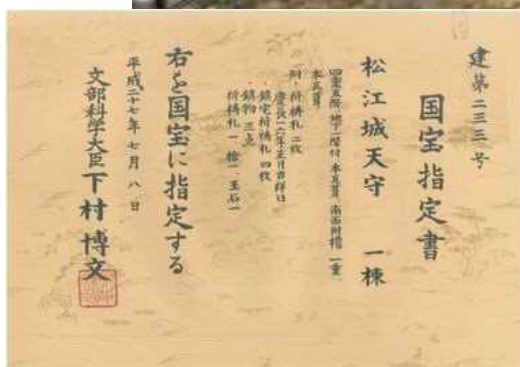 建第二三三号
国宝指定書
松江城天守 一棟
四重五階、地下一階付、本瓦葺、南面附櫓、一重、
本瓦葺
附 祈祷札 二枚
慶長十六年正月吉祥日
鎮宅祈祷札 四枚
鎮物 三点
祈祷札一、槍一、玉石一
右を国宝に指定する
平成二十七年七月八日
文部科学大臣 下村博文